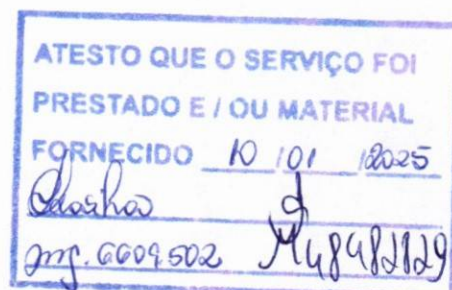 ATESTO QUE O SERVIÇO FOI
PRESTADO E / OU MATERIAL
FORNECIDO 10 / 01 / 2025
mg. 6609.502 M48482829